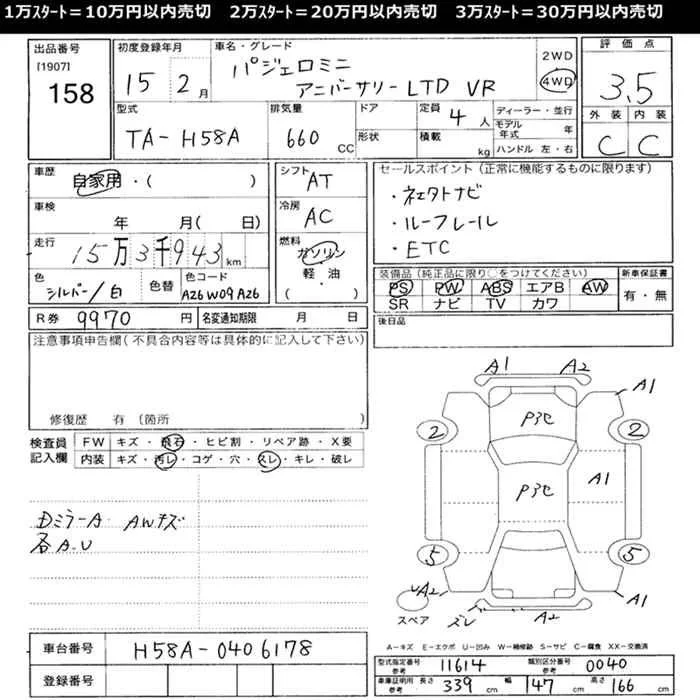 1万ｽﾀｰﾄ＝10万円以内売切　2万ｽﾀｰﾄ＝20万円以内売切　3万ｽﾀｰﾄ＝30万円以内売切
出品番号
[1907]
158
初度登録年月
15 2月
車名・グレード
パジェロミニ
アニバーサリーLTD VR
2WD
4WD
評価点
3.5
外装 内装
C C
型式
TA-H58A
排気量
660 CC
ドア
形状
定員 4人
積載 kg
ディーラー・並行
モデル年式 年
ハンドル 左・右
車歴
自家用・( )
車検
年 月( 日)
走行 15万3千943km
色
シルバー/白
色替
色コード
A26W09A26
シフト
AT
冷房
AC
燃料
ガソリン
軽・油
( ・ )
セールスポイント(正常に機能するものに限ります)
・ルーフレール
・ETC
装備品(純正品に限り○をつけてください)
PS PW ABS エアB AW
SR ナビ TV カワ
新車保証書
有・無
R券 9970円
名変通知期限 月 日
後日品
注意事項申告欄(不具合内容等は具体的に記入して下さい)
修復歴 有(箇所 )
検査員
記入欄
FW キズ・飛石・ヒビ割・リペア跡・X要
内装 キズ・汚レ・コゲ・穴・スレ・キレ・破レ
ミラーA AWキズ
各A.U
A1 A2
A1
2 Pヨセ 2
Pヨセ A1
5 5
A2
スペア
ズレ
A2
A1
A-キズ E-エクボ U-凹み W-補修跡 S-サビ C-腐食 XX-交換済
車台番号 H58A-0406178
登録番号
型式指定番号 参考 11614
類別区分番号 参考 0040
車庫証明用 参考 長さ 339 幅 147 高さ 166 cm